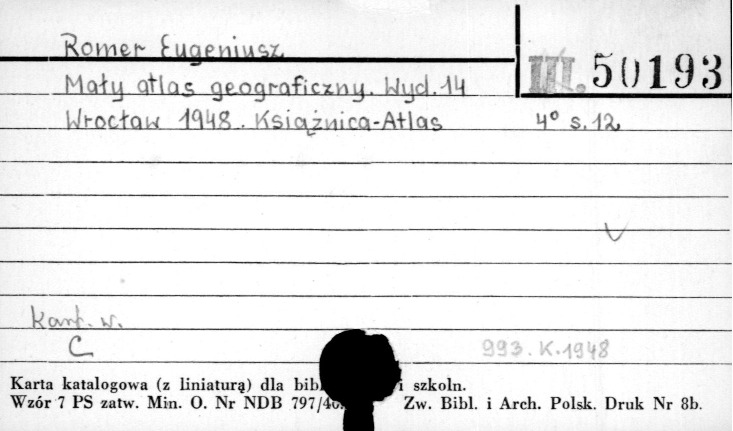 Romer Eugeniusz
III. 50193
Mały atlas geograficzny. Wyd. 14
Wrocław 1948. Książnica-Atlas 4° s. 12
Kart. w.
C
993. K. 1948
Karta katalogowa (z liniaturą) dla bibl i szkoln.
Wzór 7 PS zatw. Min. O. Nr NDB 797/4 Zw. Bibl. i Arch. Polsk. Druk Nr 8b.